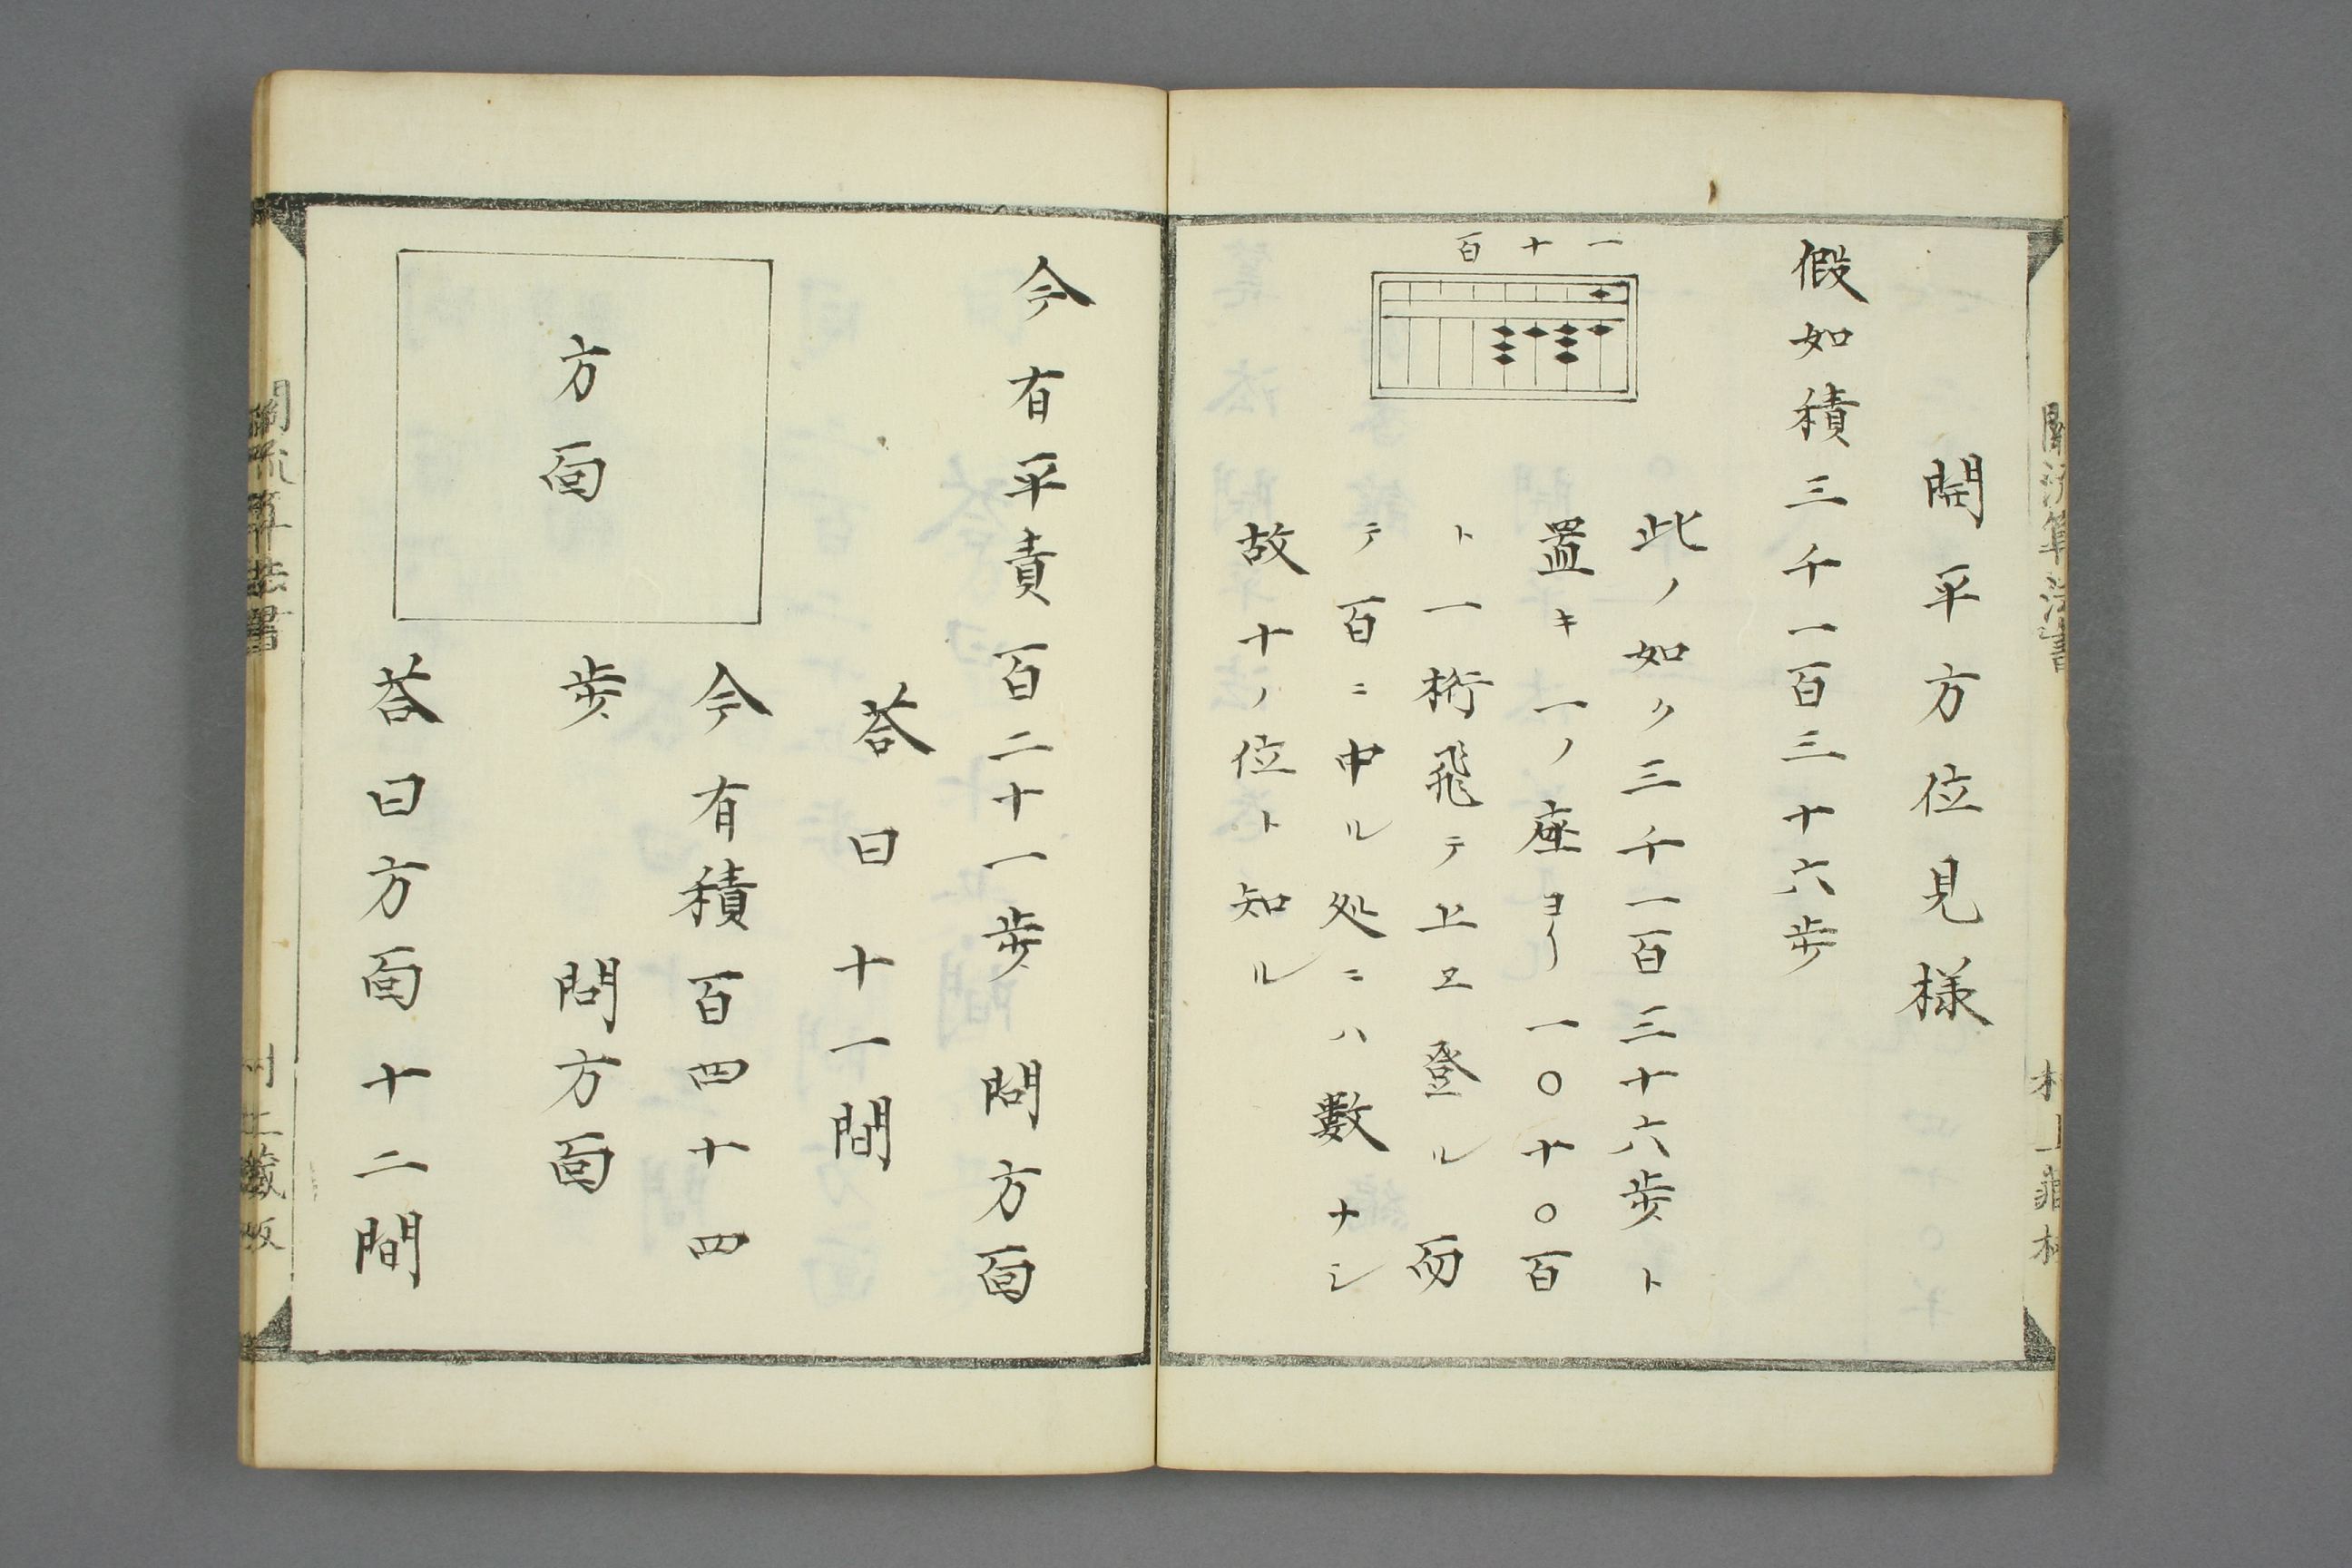 開平方位見様
假如積三千一百三十六歩
一十百
此ノ如ク三千一百三十六歩ト
置キ一ノ座ヨリ一〇十〇百
ト一桁飛テ上エ登ル而
テ百ニ中ル処ニハ數ナシ
故十ノ位ト知ル
今有平責百二十一歩 問方面
荅曰十一間
方面
今有積百四十四
歩 問方面
荅曰方面十二間
關流算法書